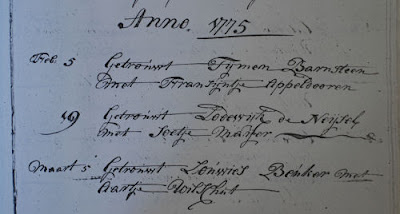 Anno. 1775
Feb. 5 Getrouwt Tymen Barnsteen
met Fransyntje Appeldooren
19 Getrouwt Lodewyk de Neysel
met Jeetje Mayer
Maart 5 Getrouwt Louwies Benker met
Aartje